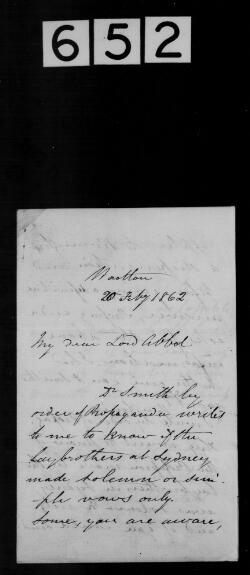 652
Wootton
20 Feby 1862
My dear Lord Abbot
Dr Smith by
order of Propaganda writes
to me to know if the
laybrothers at Sydney
made solemn or sim-
-ple vows only.
Some, you are aware,